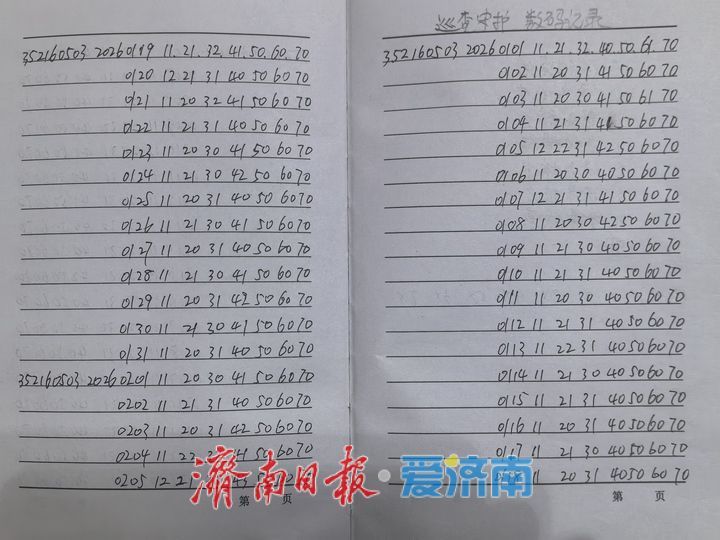 352160503 20260119 11.21.32.41.50.60.70
0120 12 21 31 40 50 60 70
0121 11 20 32 41 50 60 70
0122 11 21 31 40 50 60 70
0123 11 20 30 41 50 60 70
0124 11 21 30 42 50 60 70
0125 11 20 31 40 50 60 70
0126 11 21 30 41 50 60 70
0127 11 20 31 40 50 60 70
0128 11 21 30 41 50 60 70
0129 11 20 31 42 50 60 70
0130 11 21 30 41 50 60 70
0131 11 20 31 40 50 60 70
352160503 20260201 11 20 30 41 50 60 70
0202 11 21 31 40 50 60 70
0203 11 20 31 42 50 60 70
0204 11 22 41 50 60 70
0205 12 21 70
第 页
巡查守护 数码记录
352160503 20260101 11.21.32.40.50.61.70
0102 11 20 31 41 50 60 70
0103 11 20 30 41 50 61 70
0104 11 21 31 41 50 60 70
0105 12 22 31 42 50 60 70
0106 11 20 30 40 50 60 70
0107 12 21 31 41 50 60 70
0108 11 20 30 42 50 60 70
0109 11 21 30 40 50 60 70
0110 11 21 31 40 50 60 70
0111 11 20 30 40 50 60 70
0112 11 21 31 40 50 60 70
0113 11 22 31 40 50 60 70
0114 11 21 30 40 50 60 70
0115 11 21 31 40 50 60 70
0116 11 20 31 40 50 60 70
0117 11 21 30 40 50 60 70
11 20 31 40 50 60 70
第 页
濟南日报·爱济南